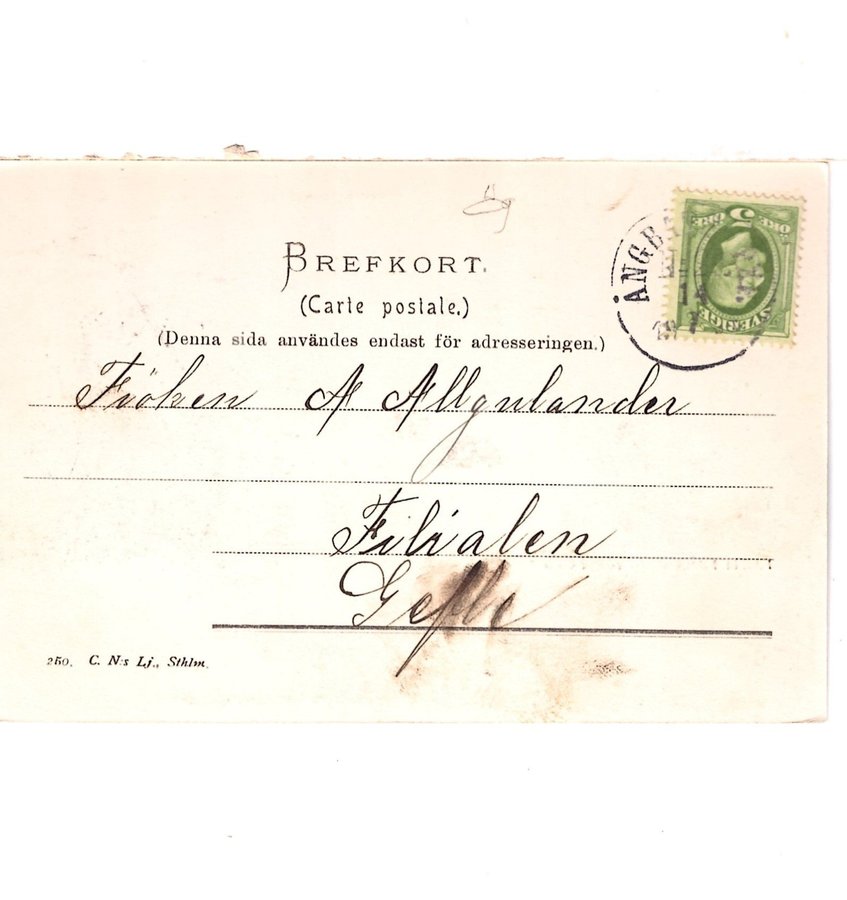 BREFKORT.
(Carte postale.)
(Denna sida användes endast för adresseringen.)
5
ÖRE ÖRE
SVERIGE
ÅNGBÅ
Fröken A Allgulander
Filialen
Gefle
250. C. N:s Lj., Sthlm.